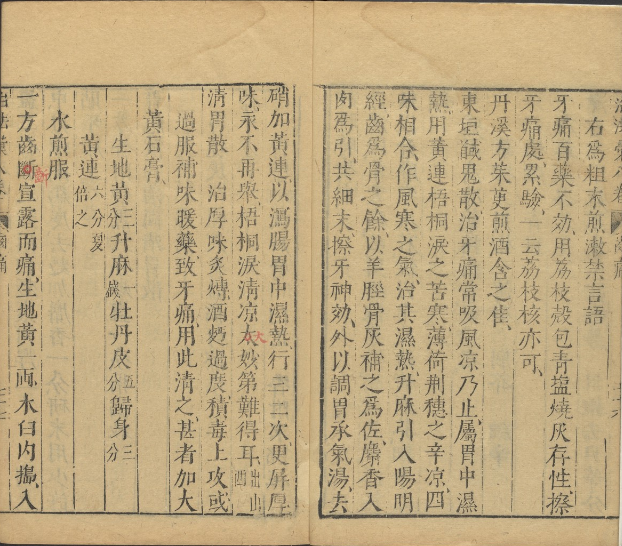 右為粗末煎漱禁言語
牙痛百藥不効用荔枝殼包青塩燒灰存性擦
牙痛處累驗一云荔枝核亦可
丹溪方茱萸煎酒含之佳
東垣鹹鬼散治牙痛常吸風凉乃止屬胃中濕
熱用黃連梧桐淚之苦寒薄荷荆穗之辛凉四
味相合作風寒之氣治其濕熱升麻引入陽明
經齒為骨之餘以羊脛骨灰補之為佐麝香入
肉為引共細末擦牙神効外以調胃承氣湯去
硝加黃連以瀉腸胃中濕熱行三二次更屏厚
味永不再舉梧桐淚清凉大妙第難得耳出山西
清胃散　治厚味炙煿酒麪過度積毒上攻或
過服補味暖藥致牙痛用此清之甚者加大
黃石膏
生地黃三分升麻一錢牡丹皮五分歸身三分
黃連六分夏倍之
水煎服
一方齒齗宣露而痛生地黃一兩木臼內搗入